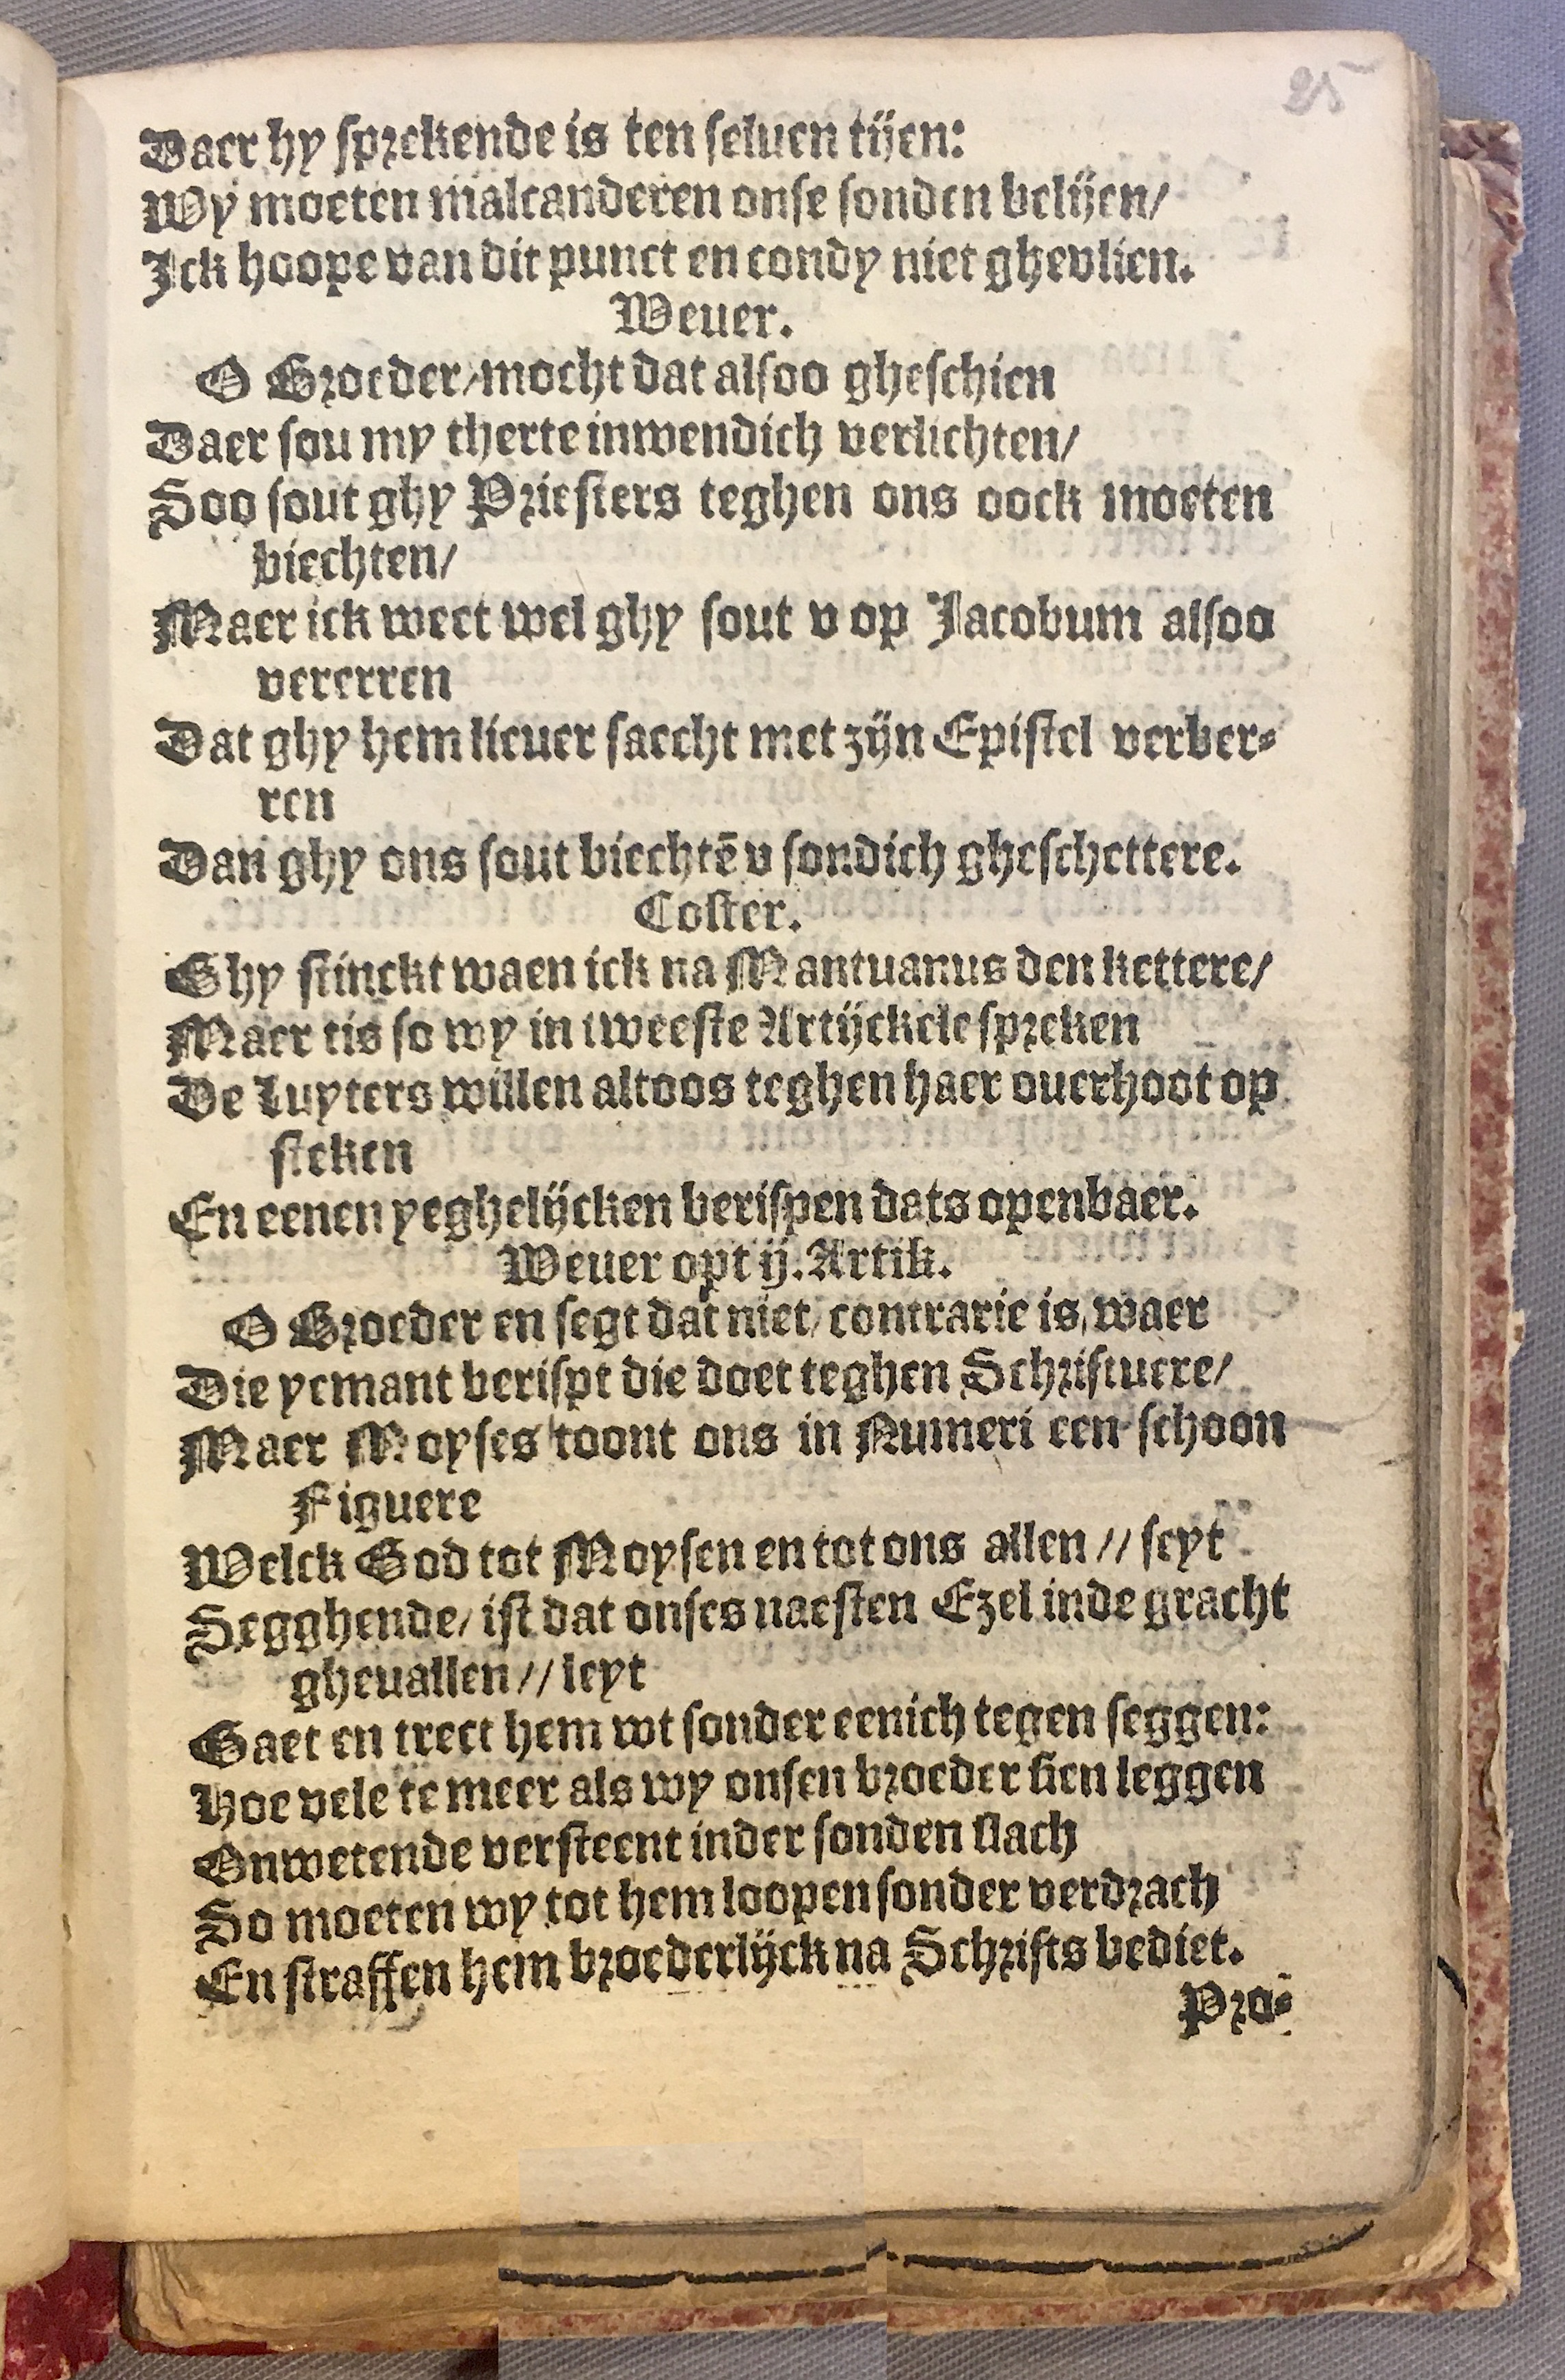 25
Daer hy sprekende is ten seluen tijen:
Wy moeten malcanderen onse sonden belijen/
Ick hoope van dit punct en condy niet ghevlien.
Weuer.
O Broeder/mocht dat alsoo gheschien
Daer sou my therte inwendich verlichten/
Soo sout ghy Priesters teghen ons oock moeten
biechten/
Maer ick weet wel ghy sout v op Jacobum alsoo
vererren
Dat ghy hem lieuer saecht met zijn Epistel verber-
ren
Dan ghy ons sout biechtē v sondich gheschettere.
Coster.
Ghy stinckt waen ick na Mantuanus den kettere/
Maer tis so wy in tweeste Artijckele spreken
De Luyters willen altoos teghen haer ouerhoot op
steken
En eenen yeghelijcken berispen dats openbaer.
Weuer opt ij. Artik.
O Broeder en segt dat niet/contrarie is, waer
Die yemant berispt die doet teghen Schriftuere/
Maer Moyses toont ons in Numeri een schoon
Figuere
Welck God tot Moysen en tot ons allen // seyt
Segghende/ ist dat onses naesten Ezel inde gracht
gheuallen // leyt
Gaet en trect hem wt sonder eenich tegen seggen:
Hoe vele te meer als wy onsen broeder sien leggen
Onwetende versteent inder sonden slach
So moeten wy tot hem loopen sonder verdrach
En straffen hem broederlijck na Schrifts bediet.
Pro-